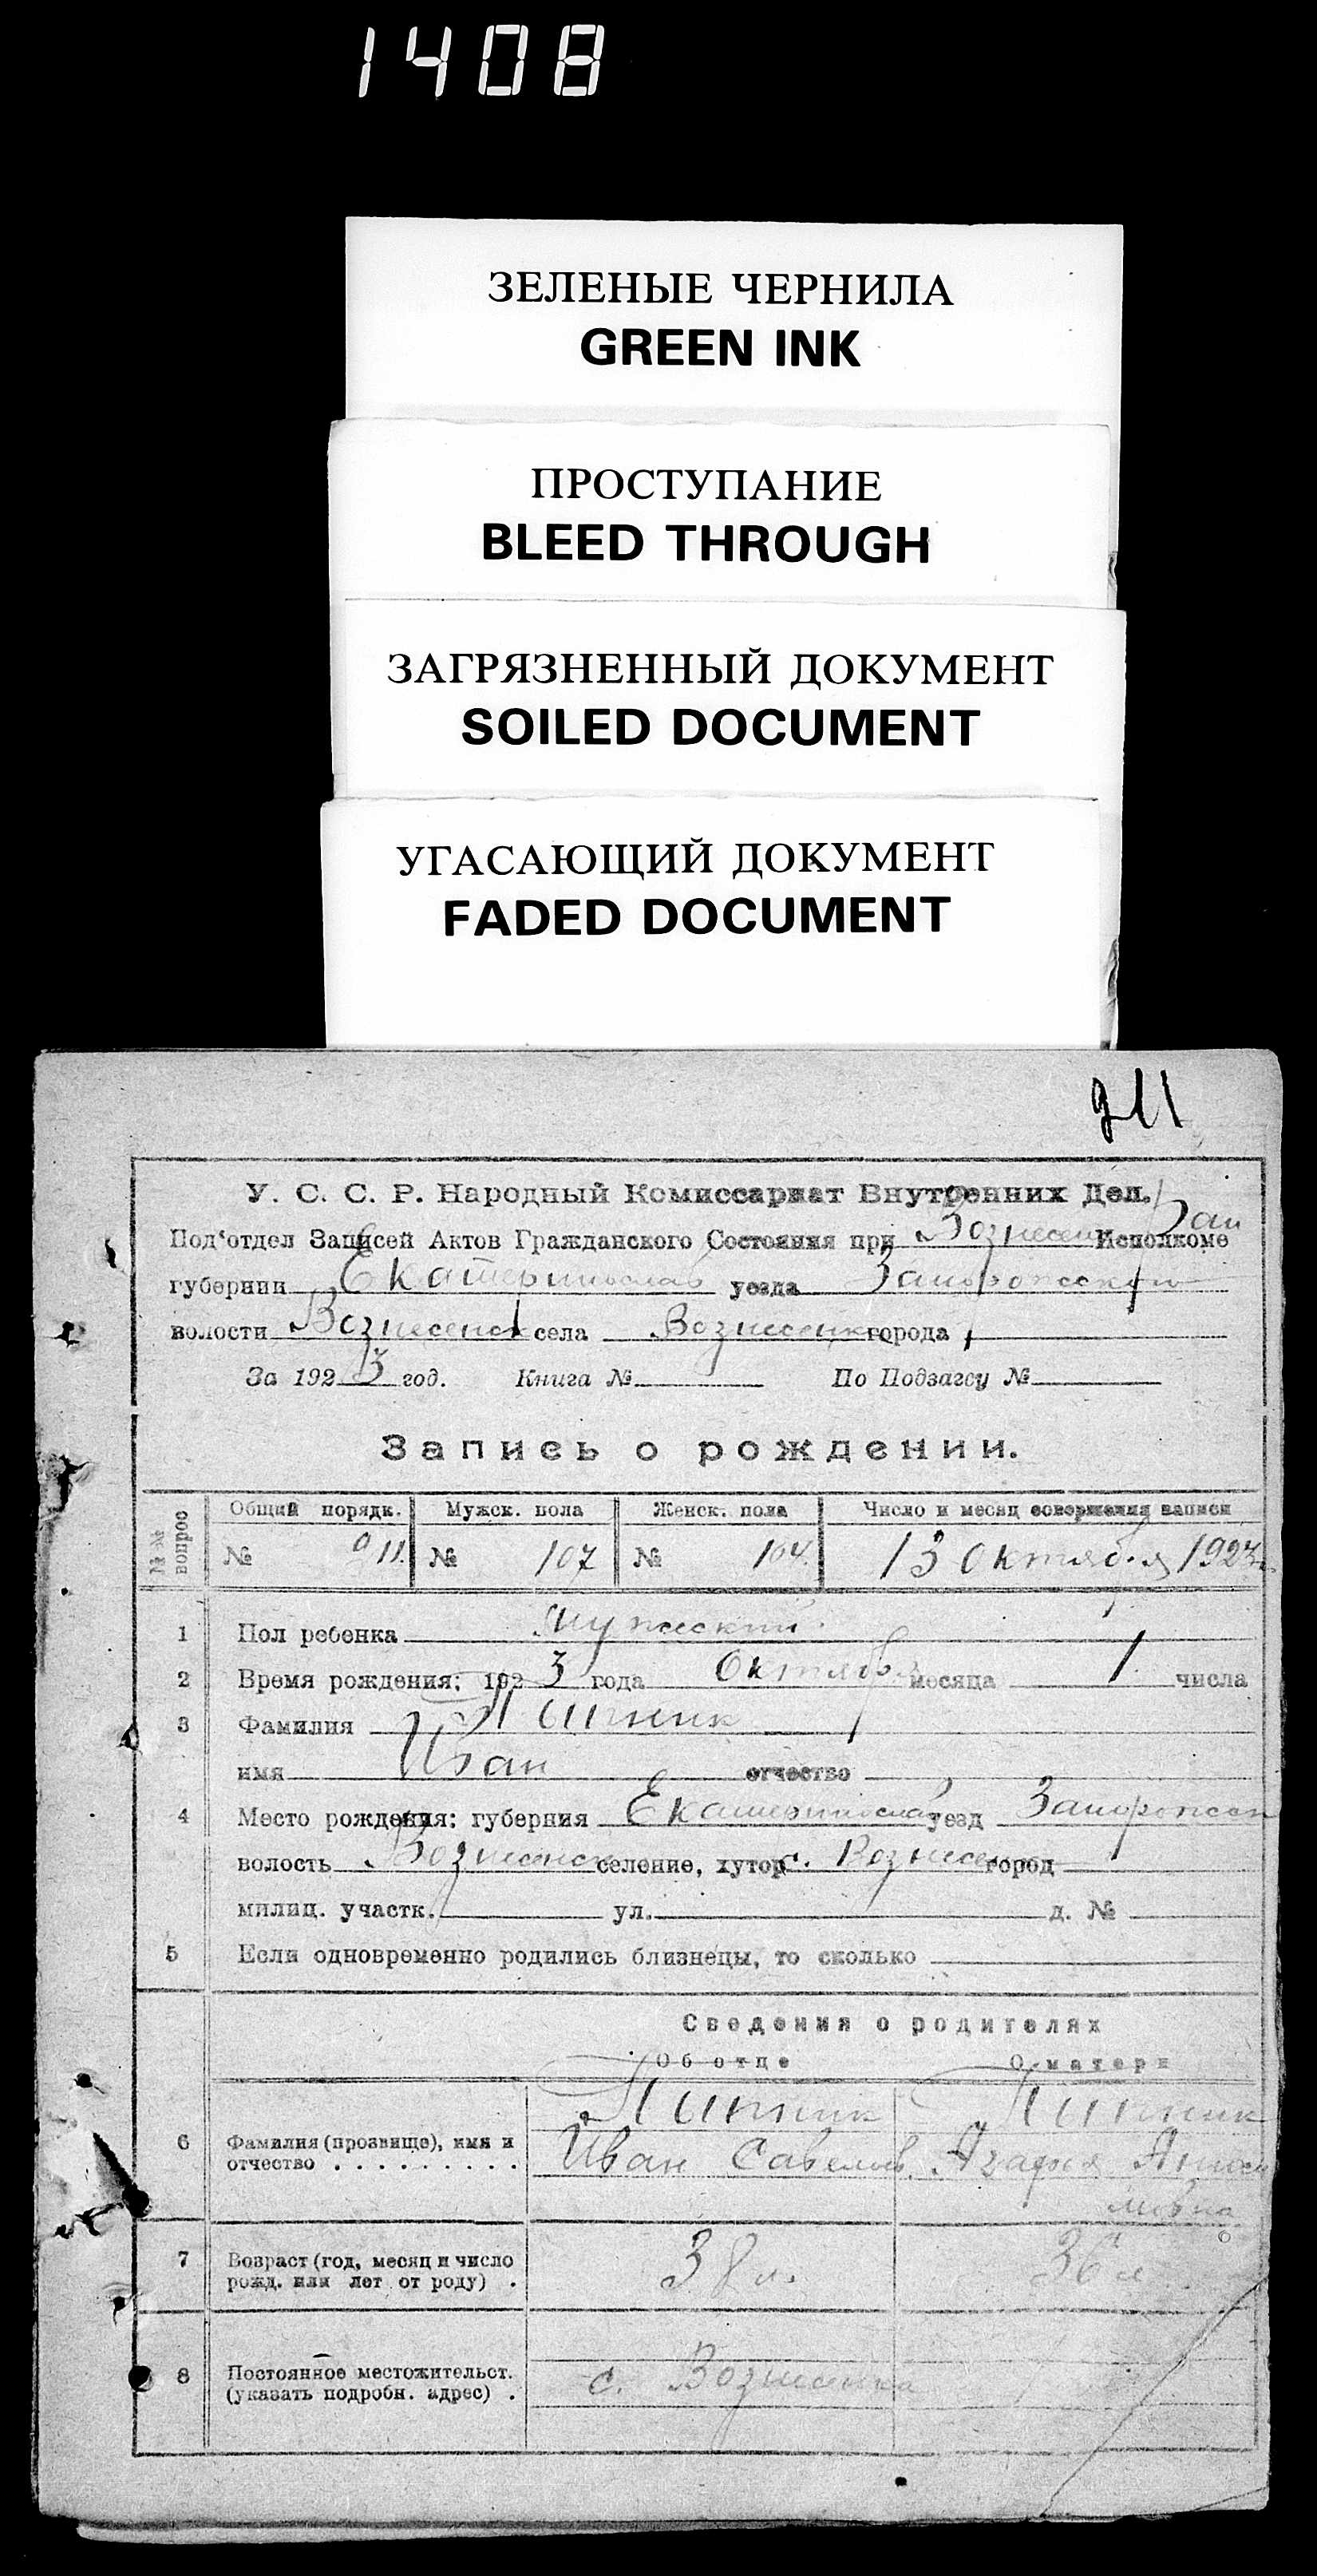 1408
ЗЕЛЕНЫЕ ЧЕРНИЛА
GREEN INK
ПРОСТУПАНИЕ
BLEED THROUGH
ЗАГРЯЗНЕННЫЙ ДОКУМЕНТ
SOILED DOCUMENT
УГАСАЮЩИЙ ДОКУМЕНТ
FADED DOCUMENT
211
У. С. С. Р. Народный Комиссариат Внутренних Дел.
Под‘отдел Записей Актов Гражданского Состояния при Вознесен Исполкоме
губернии Екатеринослав уезда Запорожского
волости Вознесенск села Вознесенка города
За 1923 год. Книга № По Подзагсу №
Запись о рождении.
№№ вопрос
Общий порядк. Мужск. пола Женск. пола Число и месяц совершения записи
№ 211. № 107 № 104. 13 Октября 1923
1 Пол ребенка Мужеский
2 Время рождения: 1923 года Октября месяца 1 числа
3 Фамилия Липник
имя Иван отчество
4 Место рождения: губерния Екатеринослав уезд Запорожск
волость Вознесенск селение, хутор с. Вознесен город
милиц. участк. ул. д. №
5 Если одновременно родились близнецы, то сколько
Сведения о родителях
Об отце О матери
6 Фамилия (прозвище), имя и отчество Липник Липник
Иван Савельев. Агафия
7 Возраст (год, месяц и число рожд. или лет от роду) 38 л. 36 л
8 Постоянное местожительст. (указать подробн. адрес) с. Вознесенка